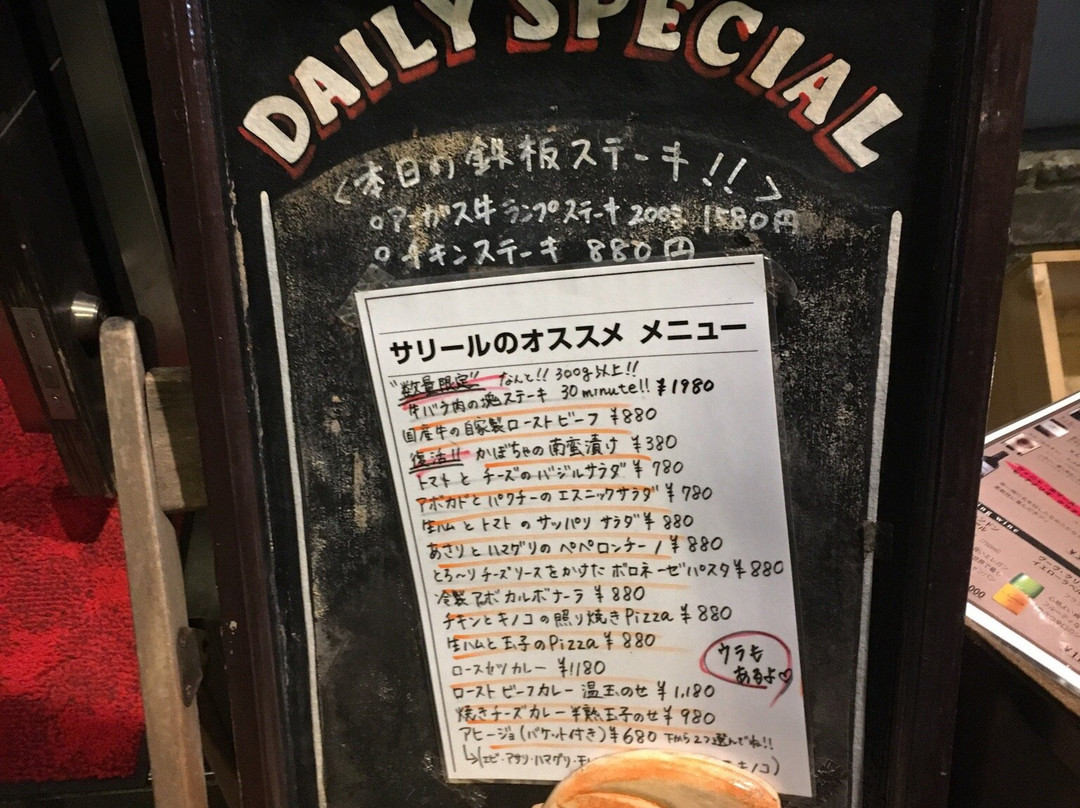 DAILY SPECIAL
<本日の鉄板ステーキ!!>
○アンガス牛ランプステーキ 200g 1580円
○チキンステーキ 880円
サリールのオススメ メニュー
"数量限定" なんと!! 300g以上!!
牛バラ肉の塊ステーキ 30 minute!! ¥1980
国産牛の自家製ローストビーフ ¥880
復活!! かぼちゃの南蛮漬け ¥380
トマトとチーズのバジルサラダ ¥780
アボカドとパクチーのエスニックサラダ ¥780
生ハムとトマトのサッパリサラダ ¥880
あさりとハマグリのペペロンチーノ ¥880
とろ〜りチーズソースをかけたボロネーゼパスタ ¥880
冷製アボカルボナーラ ¥880
チキンとキノコの照り焼きPizza ¥880
生ハムと玉子のPizza ¥880
ロースカツカレー ¥1180
ローストビーフカレー 温玉のせ ¥1,180
焼きチーズカレー半熟玉子のせ ¥980
アヒージョ(バケット付き) ¥680 下から2つ選んでね!!
↳(エビ・アサリ・ハマグリ・
キノコ)
ウラも
あるよ♡